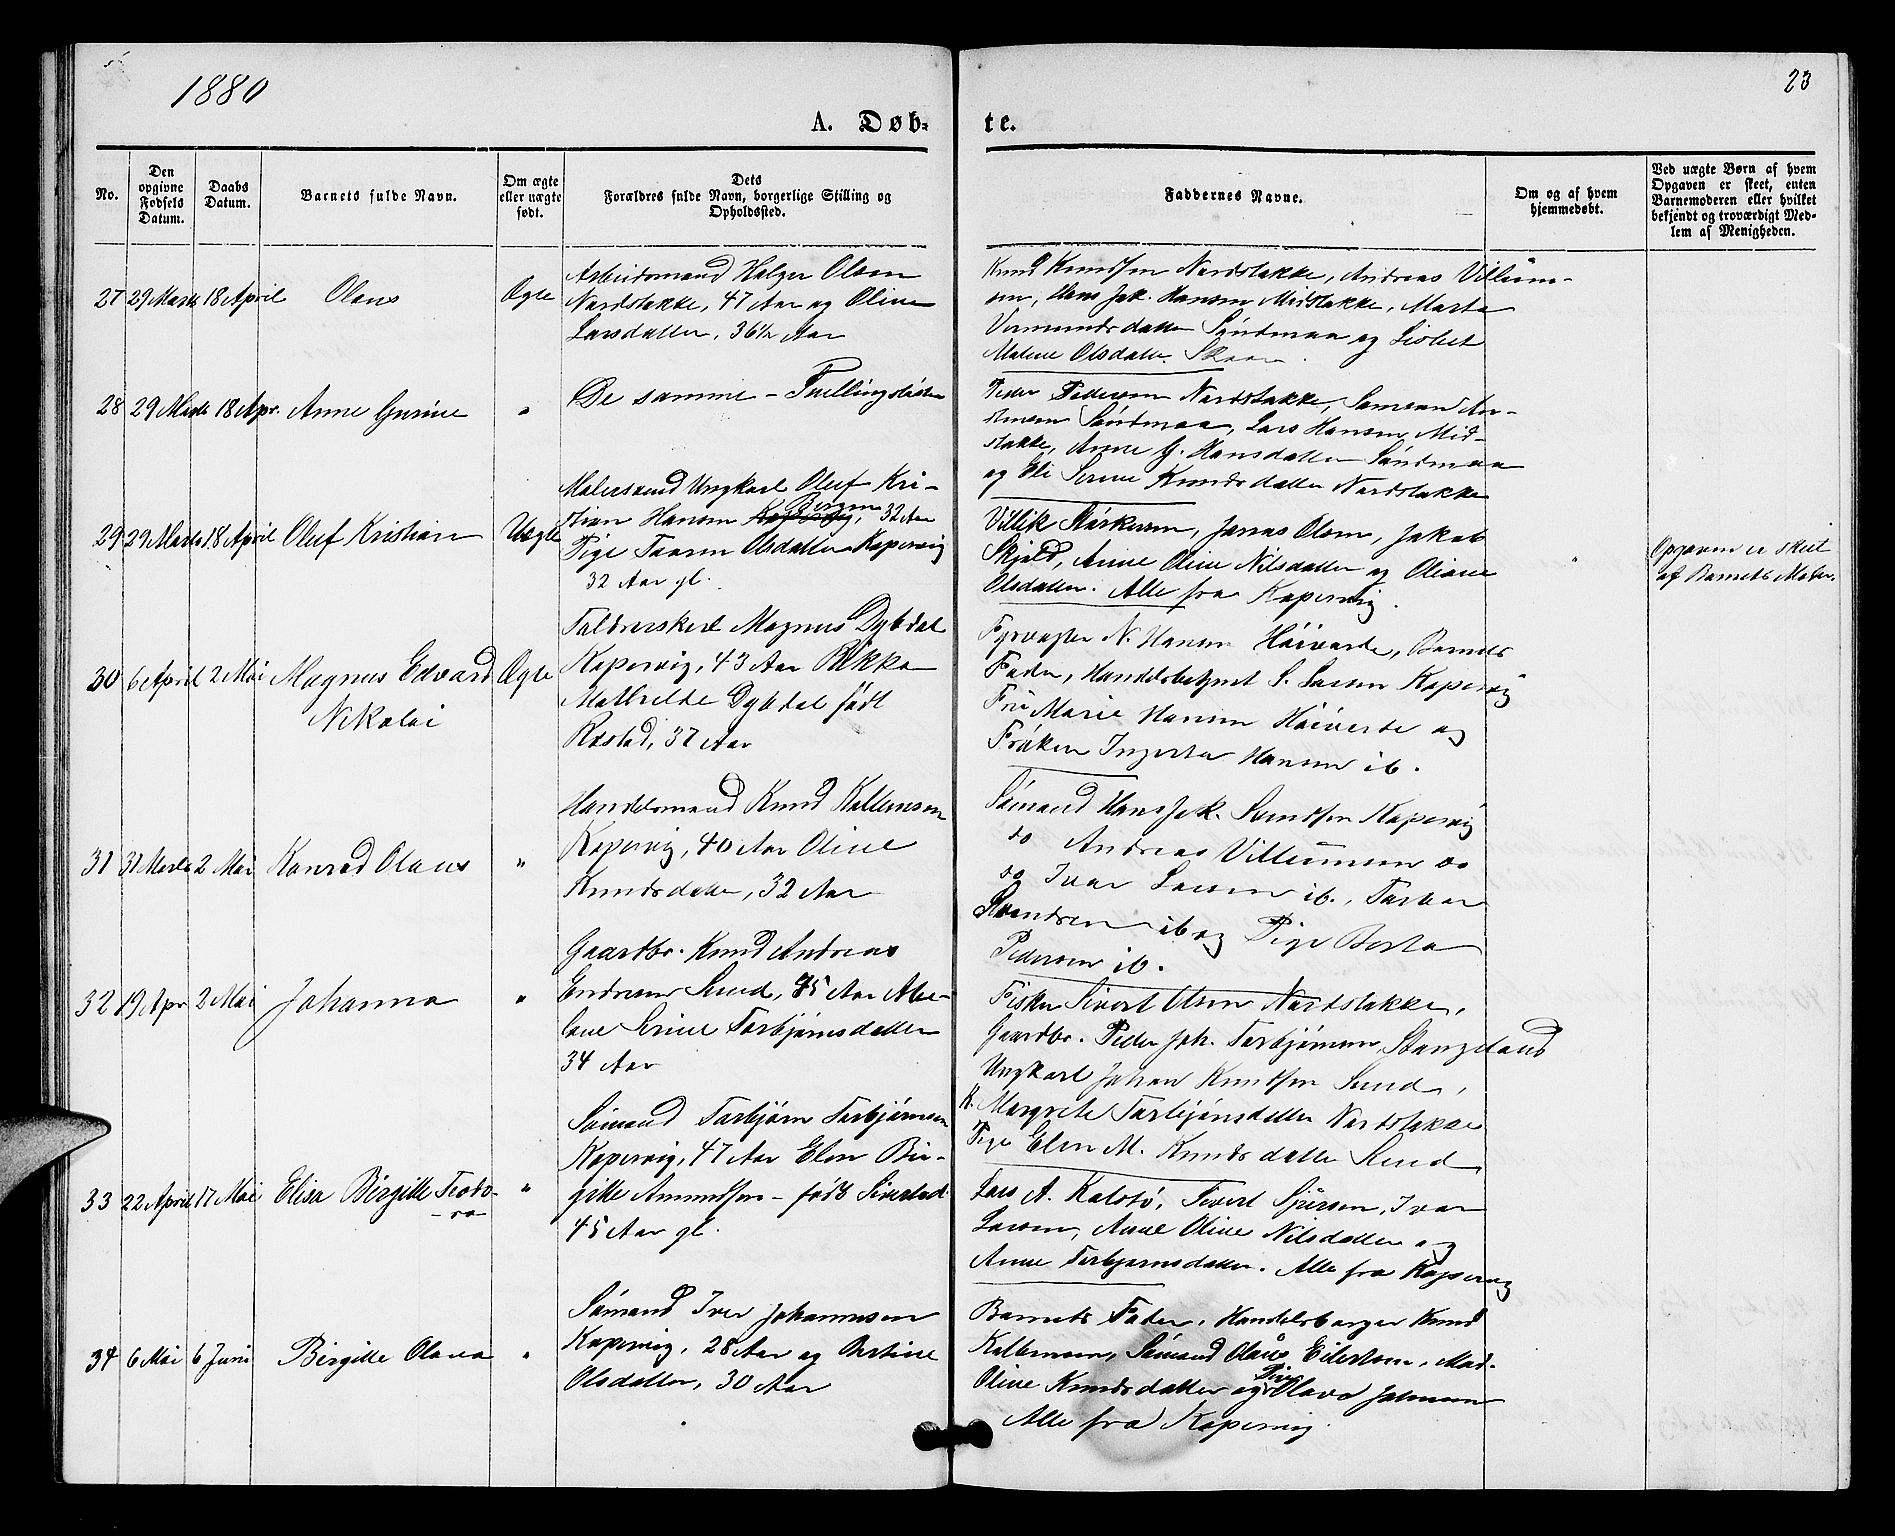 1880
23
A. Døb-
te.
No.
Den opgivne Fødsels Datum.
Daabs Datum.
Barnets fulde Navn.
Om ægte eller uægte født.
Dets Forældres fulde Navn, borgerlige Stilling og Opholdssted.
Faddernes Navne.
Om og af hvem hjemmedøbt.
Ved uægte Børn af hvem Opgaven er skeet, enten Barnemoderen eller hvilket bekjendt og troværdigt Medlem af Menigheden.
27 29 Marts 18 April Olaus Ægte
Arbeidsmand Holger Olsen
Nordstokke, 47 Aar og Oline
Larsdatter, 36½ Aar
Knud Knudsen Nordstokke, Andreas Villum-
sen, Hans Jak. Hansen Midstokke, Marta
Vermundsdatter Søndmaa og Lisbet
Malene Olsdatter Skaar
28 29 Marts 18 Apr. Anne Gurine "
De samme - Tvillingsøster
Peder Pedersen Nordstokke, Samson An-
Søndmaa, Lars Hansen Mid-
stokke, Anne G. Hansdatter Søndmaa
og Eli Serine Knudsdatter Nordstokke
29 29 Marts 18 April Oluf Kristian Uægte
Malersvend Ungkarl Oluf Kri-
stian Hansen Kopervig Bergen, 32 Aar
Pige Taaren Olsdatter Kopervig
32 Aar gl.
Villik Størkersen, Jonas Olsen, Jakob
Skjold, Anne Oline Nilsdatter og Oliane
Olsdatter. Alle fra Kopervig.
Opgaven er skeet
af Barnets Moder.
30 6 April 2 Mai Magnus Edvard Ægte
Nikolai
Toldroerskarl Magnus Dybdal
Kopervig, 43 Aar Rikka
Mathilde Dybdal født
Røstad, 37 Aar
Fyrvogter N. Hansen Høivarde, Barnets
Fader, Handelsbetjent S. Larsen Kopervig
Fru Marie Hansen Høivarde og
Frøken Ingerta Hansen ib.
31 31 Marts 2 Mai Konrad Olaus "
Handelsmand Knud Kolbensen
Kopervig, 40 Aar Oline
Knudsdatter, 32 Aar
Sømand Hans Jak. Knudsen Kopervig
do Andreas Villumsen do
do Ivar Larsen ib., Torbør
ib og Pige Berta
Pedersen ib.
32 19 Apr 2 Mai Johanna "
Gaardbr. Knud Andreas
Endresen Sund, 45 Aar Ma-
lene Serine Torbjørnsdatter
34 Aar
Fisker Sivert Olsen Nordstokke,
Gaardbr. Peder Joh. Torbjørnsen Stangeland
Ungkarl Johan Knudsen Sund,
K. Margrete Torbjørnsdatter Nordstokke
Pige Elen M. Knudsdatter Sund
33 22 April 17 Mai Elisa Birgitte Teodo- "
ra
Sømand Torbjørn Torbjørnsen
Kopervig, 47 Aar Elen Bir-
gitte Amundsen - født Sivertsd.
45 Aar gl.
Lars A. Kalstø, Sivert Sjursen, Ivar
Larsen, Anne Oline Nilsdatter og
Anne Torbjørnsdatter. Alle fra Kopervig
34 6 Mai 6 Juni Birgitte Olava "
Sømand Iver Johannesen
Kopervig, 28 Aar og Bertine
Olsdatter, 30 Aar
Barnets Fader, Handelsborger Knud
Kolbensen, Sømand Olaus Eilertsen, Mad.
Oline Knudsdatter og Pige Olava Johnsen
Alle fra Kopervig.